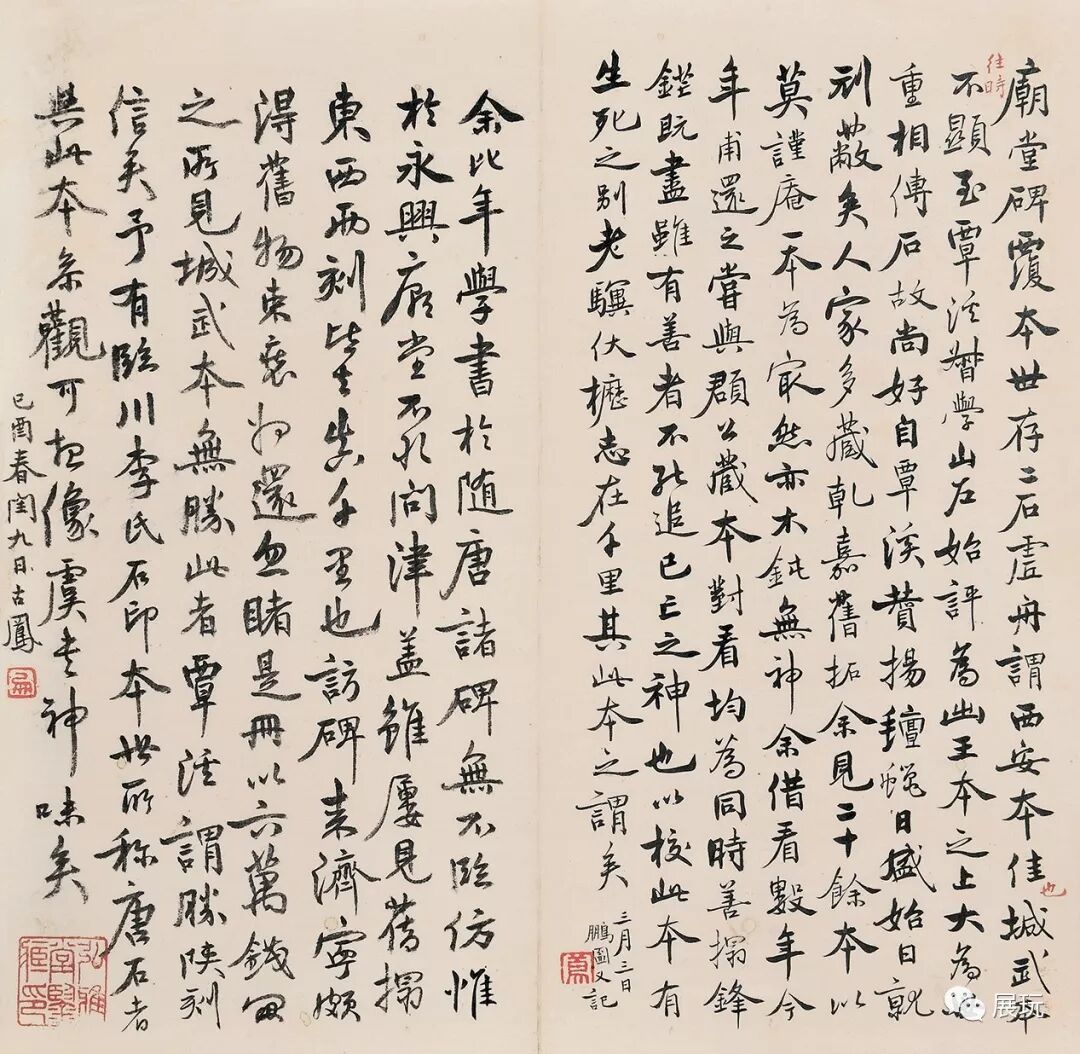 廟堂碑覆本世存二石虛舟謂西安本佳城武本
往時
也
不顯至覃溪督學山左始評為出王本之上大為
重相傳石故尚好自覃溪贊揚氈蠟日盛始日就
刓敝矣人家多藏乾嘉舊拓余見二十餘本以
莫謹庵一本為最然亦木鈍無神余借看數年今
年甫還之嘗與群公藏本對看均為同時善搨鋒
鎩既盡雖有善者不能追已亡之神也以校此本有
生死之别老驥伏櫪志在千里其此本之謂矣
三月三日
鵬圖又記
余比年學書於随唐諸碑無不臨仿惟
於永興廟堂不敢問津蓋雖屢見舊搨
東西兩刻皆失真千里也訪碑来濟寧頗
得舊物束裝將還忽睹是冊以六萬錢
之所見城武本無勝此者覃溪謂勝陝刻
信矣予有臨川李氏石印本世所称唐石者
與此本參觀可想像虞書神味矣
己酉春閏九日古鳳
弘雅堂